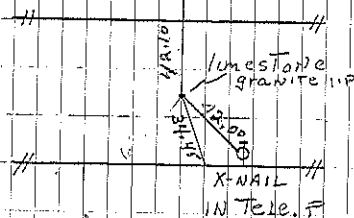 42.10
limestone
granite L.P
34.45
X-NAIL
IN Tele. P